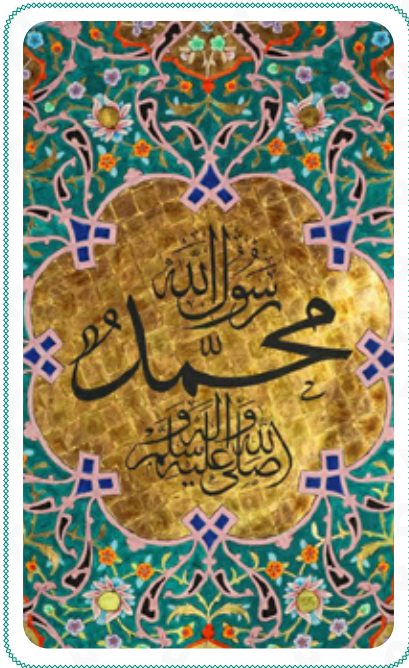 رسول الله
محمد
صلى الله عليه وآله وسلم